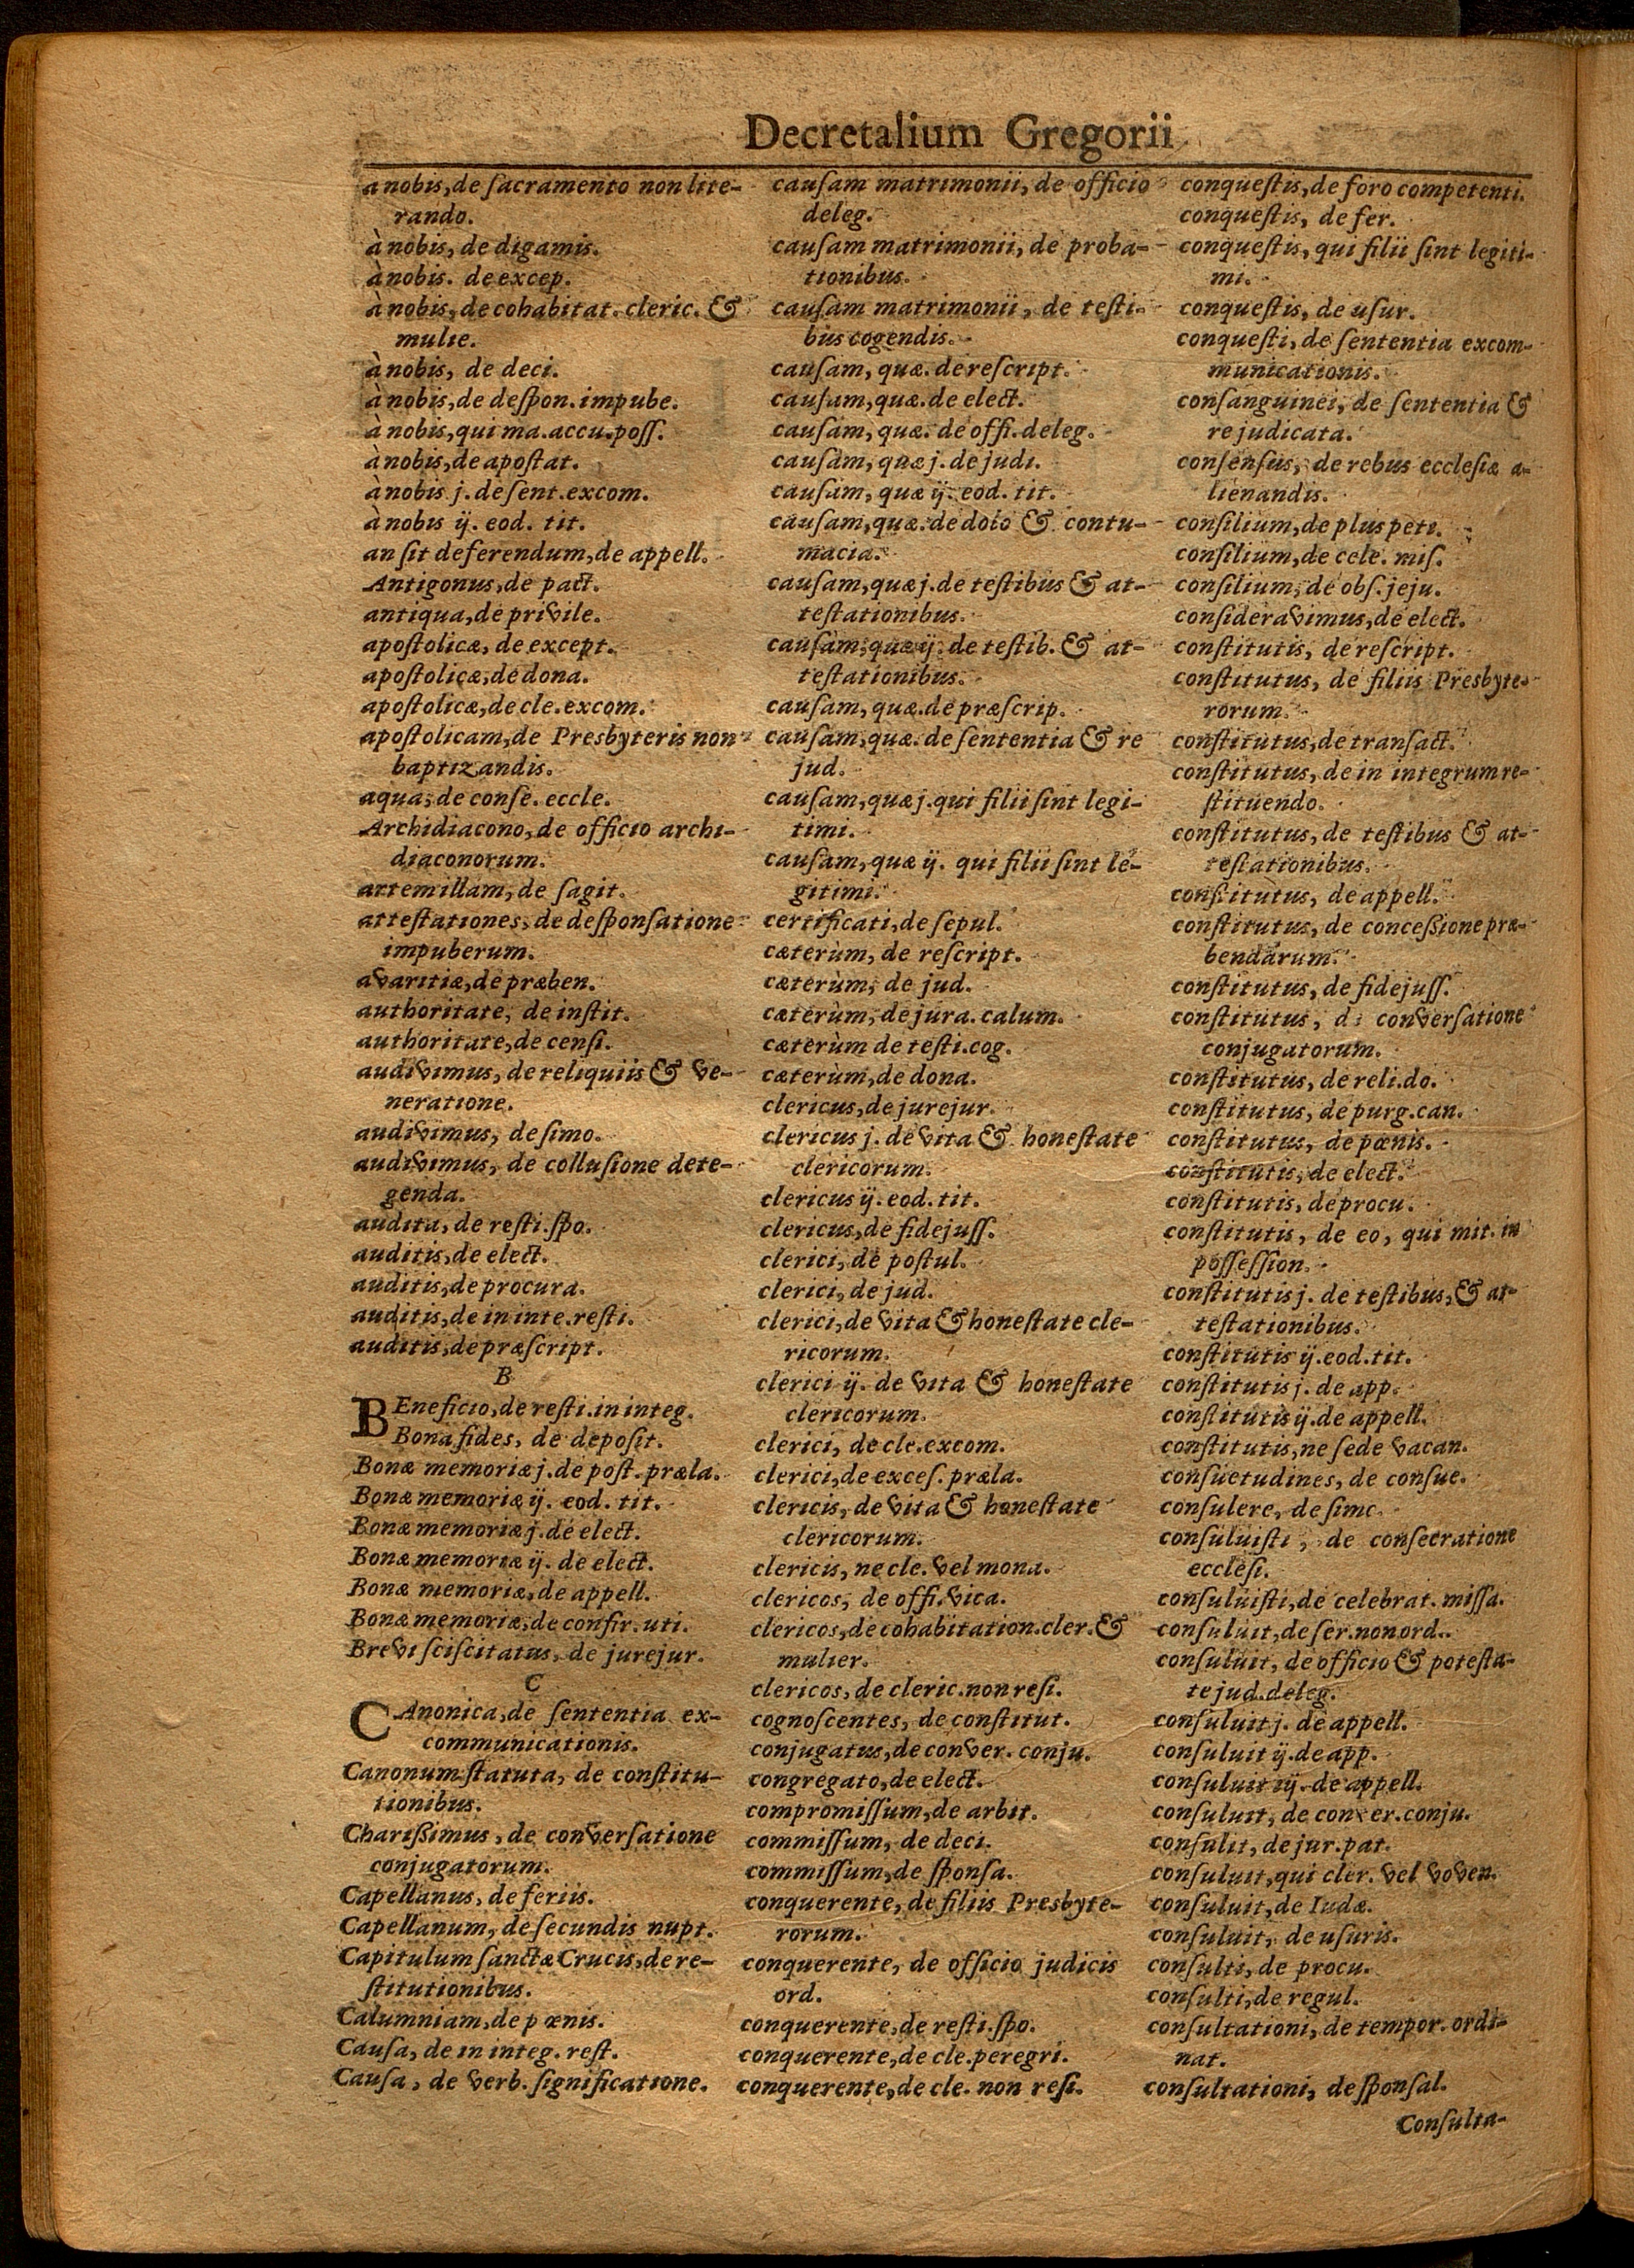 Decretalium Gregorii
a nobis, de sacramento non lite-
rando.
à nobis, de digamis.
à nobis. de excep.
à nobis, de cohabitat. cleric. &
mulie.
à nobis, de deci.
à nobis, de despon. impube.
à nobis, qui ma. accu. poss.
à nobis, de apostat.
à nobis j. de sent. excom.
à nobis ij. eod. tit.
an sit deferendum, de appell.
Antigonus, de pact.
antiqua, de privile.
apostolicæ, de except.
apostolicæ, de dona.
apostolicæ, de cle. excom.
apostolicam, de Presbyteris non
baptizandis.
aqua, de conse. eccle.
Archidiacono, de officio archi-
diaconorum.
artemillam, de sagit.
attestationes, de desponsatione
impuberum.
avaritiæ, de præben.
authoritate, de instit.
authoritate, de censi.
audivimus, de reliquiis & ve-
neratione.
audivimus, de simo.
audivimus, de collusione dete-
genda.
audita, de resti. spo.
auditis, de elect.
auditis, de procura.
auditis, de in inte. resti.
auditis, de præscript.
B
BEneficio, de resti. in integ.
Bona fides, de deposit.
Bonæ memoriæ j. de post. præla.
Bonæ memoriæ ij. eod. tit.
Bonæ memoriæ j. de elect.
Bonæ memoriæ ij. de elect.
Bonæ memoriæ, de appell.
Bonæ memoriæ, de confir. uti.
Brevi sciscitatus, de jurejur.
C
CAnonica, de sententia ex-
communicationis.
Canonum statuta, de constitu-
tionibus.
Charißimus, de conversatione
conjugatorum.
Capellanus, de feriis.
Capellanum, de secundis nupt.
Capitulum sanctæ Crucis, de re-
stitutionibus.
Calumniam, de pœnis.
Causa, de in integ. rest.
Causa, de verb. significatione.
causam matrimonii, de officio
deleg.
causam matrimonii, de proba-
tionibus.
causam matrimonii, de testi-
bus cogendis.
causam, quæ. de rescript.
causam, quæ. de elect.
causam, quæ. de offi. deleg.
causam, quæ j. de judi.
causam, quæ ij. eod. tit.
causam, quæ. de dolo & contu-
macia.
causam, quæ j. de testibus & at-
testationibus.
causam, quæ ij. de testib. & at-
testationibus.
causam, quæ. de præscrip.
causam, quæ. de sententia & re
jud.
causam, quæ j. qui filii sint legi-
timi.
causam, quæ ij. qui filii sint le-
gitimi.
certificati, de sepul.
cæterùm, de rescript.
cæterùm, de jud.
cæterùm, de jura. calum.
cæterùm de testi. cog.
cæterùm, de dona.
clericus, de jurejur.
clericus j. de vita & honestate
clericorum.
clericus ij. eod. tit.
clericus, de fidejuss.
clerici, de postul.
clerici, de jud.
clerici, de vita & honestate cle-
ricorum.
clerici ij. de vita & honestate
clericorum.
clerici, de cle. excom.
clerici, de exces. præla.
clericis, de vita & honestate
clericorum.
clericis, ne cle. vel mona.
clericos, de offi. vica.
clericos, de cohabitation. cler. &
mulier.
clericos, de cleric. non resi.
cognoscentes, de constitut.
conjugatus, de conver. conju.
congregato, de elect.
compromissum, de arbit.
commissum, de deci.
commissum, de sponsa.
conquerente, de filiis Presbyte-
rorum.
conquerente, de officio judicis
ord.
conquerente, de resti. spo.
conquerente, de cle. peregri.
conquerente, de cle. non resi.
conquestis, de foro competenti.
conquestis, de fer.
conquestis, qui filii sint legiti-
mi.
conquestis, de usur.
conquesti, de sententia excom-
municationis.
consanguinei, de sententia &
re judicata.
consensus, de rebus ecclesiæ a-
lienandis.
consilium, de plus peti.
consilium, de cele. mis.
consilium, de obs. jeju.
consideravimus, de elect.
constitutis, de rescript.
constitutus, de filiis Presbyte-
rorum.
constitutus, de transact.
constitutus, de in integrum re-
stituendo.
constitutus, de testibus & at-
testationibus.
constitutus, de appell.
constitutus, de conceßione præ-
bendarum.
constitutus, de fidejuss.
constitutus, de conversatione
conjugatorum.
constitutus, de reli. do.
constitutus, de purg. can.
constitutus, de pœnis.
constitutis, de elect.
constitutis, de procu.
constitutis, de eo, qui mit. in
possession.
constitutis j. de testibus, & at-
testationibus.
constitutis ij. eod. tit.
constitutis j. de app.
constitutis ij. de appell.
constitutis, ne sede vacan.
consuetudines, de consue.
consulere, de simo.
consuluisti, de consecratione
ecclesi.
consuluisti, de celebrat. missa.
consuluit, de ser. non ord.
consuluit, de officio & potesta-
te jud. deleg.
consuluit j. de appell.
consuluit ij. de app.
consuluit iij. de appell.
consuluit, de conver. conju.
consulit, de jur. pat.
consuluit, qui cler. vel voven.
consuluit, de Iudæ.
consuluit, de usuris.
consulti, de procu.
consulti, de regul.
consultationi, de tempor. ordi-
nat.
consultationi, de sponsal.
Consulta-